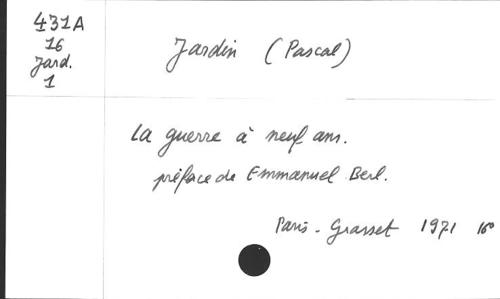 431A
16
Jard.
1
Jardin (Pascal)
La guerre à neuf ans.
préface de Emmanuel Berl.
Paris - Grasset 1971 16°